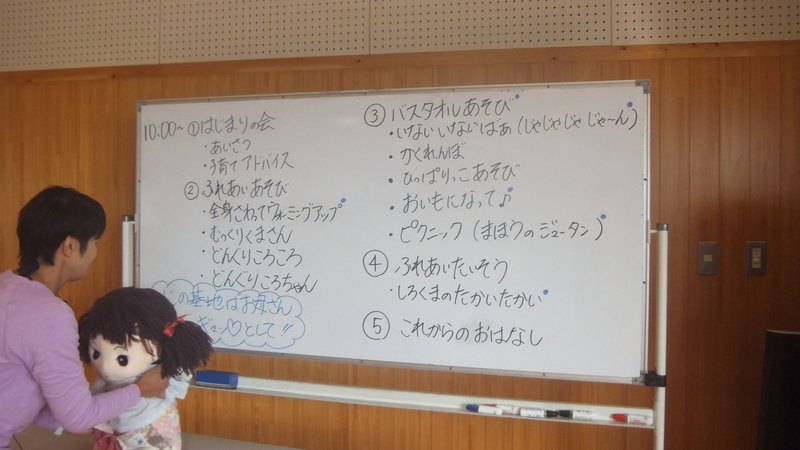 10:00~ ①はじまりの会
・あいさつ
・子育てアドバイス
②ふれあいあそび
・全身さわってウォーミングアップ
・むっくりくまさん
・どんぐりころころ
・どんぐりころちゃん
の基地はお母さん
ギュー♡として!!
③バスタオルあそび
・いないいないばあ(じゃじゃじゃじゃ~ん)
・かくれんぼ
・ひっぱりっこあそび
・おいもになって♪
・ピクニック(まほうのジュータン)
④ふれあいたいそう
・しろくまのたかいたかい
⑤これからのおはなし